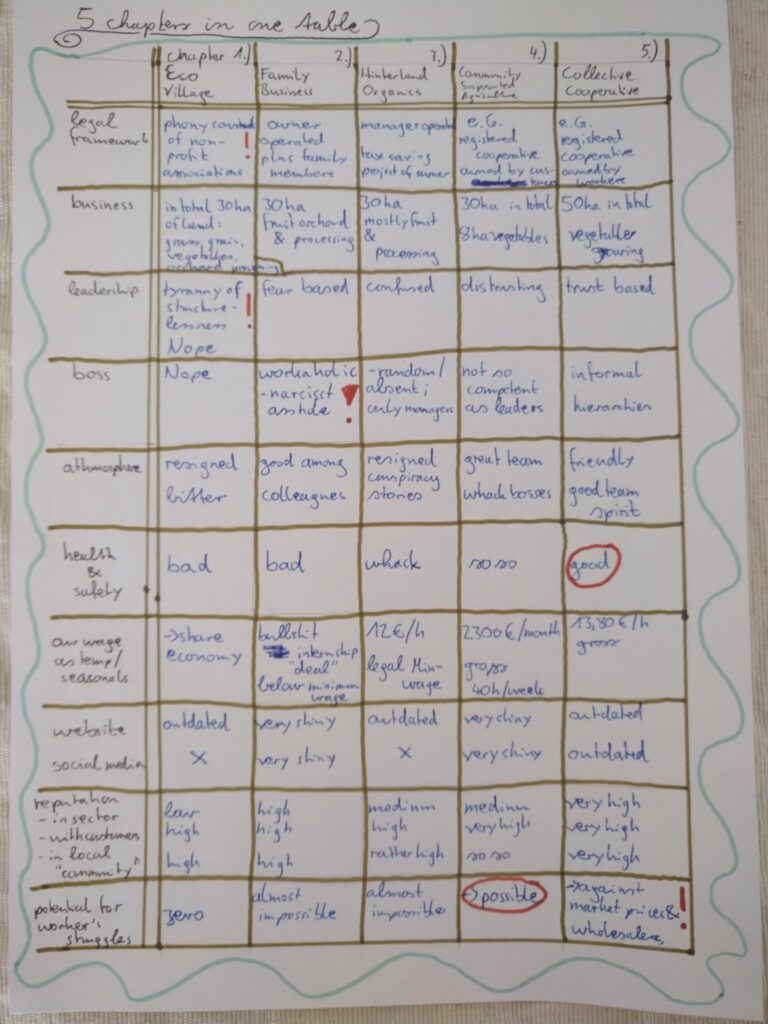 5 chapters in one table
Chapter 1.)
Eco
Village
2.)
Family
Business
3.)
Hinterland
Organics
4.)
Community
Supported
Agriculture
5.)
Collective
Cooperative
legal
framework
phony construct
of non-
profit
associations
!
owner
operated
plus family
members
manager operated
tax saving
project of owner
e.G.
registered
cooperative
owned by cus-
tomers
e.G.
registered
cooperative
owned by
workers
business
in total 30ha
of land:
grass, grain,
vegetables,
orchard processing
30ha
fruit orchard
& processing
30ha
mostly fruit
&
processing
30ha in total
8ha vegetables
50ha in total
vegetable
growing
leadership
tyranny of
structure-
lessness
Nope
!
fear based
confused
distrusting
trust based
boss
Nope
workaholic
-narcisst
asshole
!
-random/
absent;
only managers
not so
competent
as leaders
informal
hierarchies
athmosphere
resigned
bitter
good among
colleagues
resigned
conspiracy
stories
great team
whack bosses
friendly
good team
spirit
health
&
safety
bad
bad
whack
so so
good
our wage
as temp/
seasonals
->share
economy
bullshit
internship
"deal"
below minimum
wage
12€/h
legal Min-
wage
2300€/month
gross
40h/week
13,80€/h
gross
website
social media
outdated
X
very shiny
very shiny
outdated
X
very shiny
very shiny
outdated
outdated
reputation
- in sector
- with customers
- in local
"community"
low
high
high
high
high
high
medium
high
rather high
medium
very high
so so
very high
very high
very high
potential for
worker's
struggles
zero
almost
impossible
almost
impossible
->possible
->against
market prices &
wholesalers
!